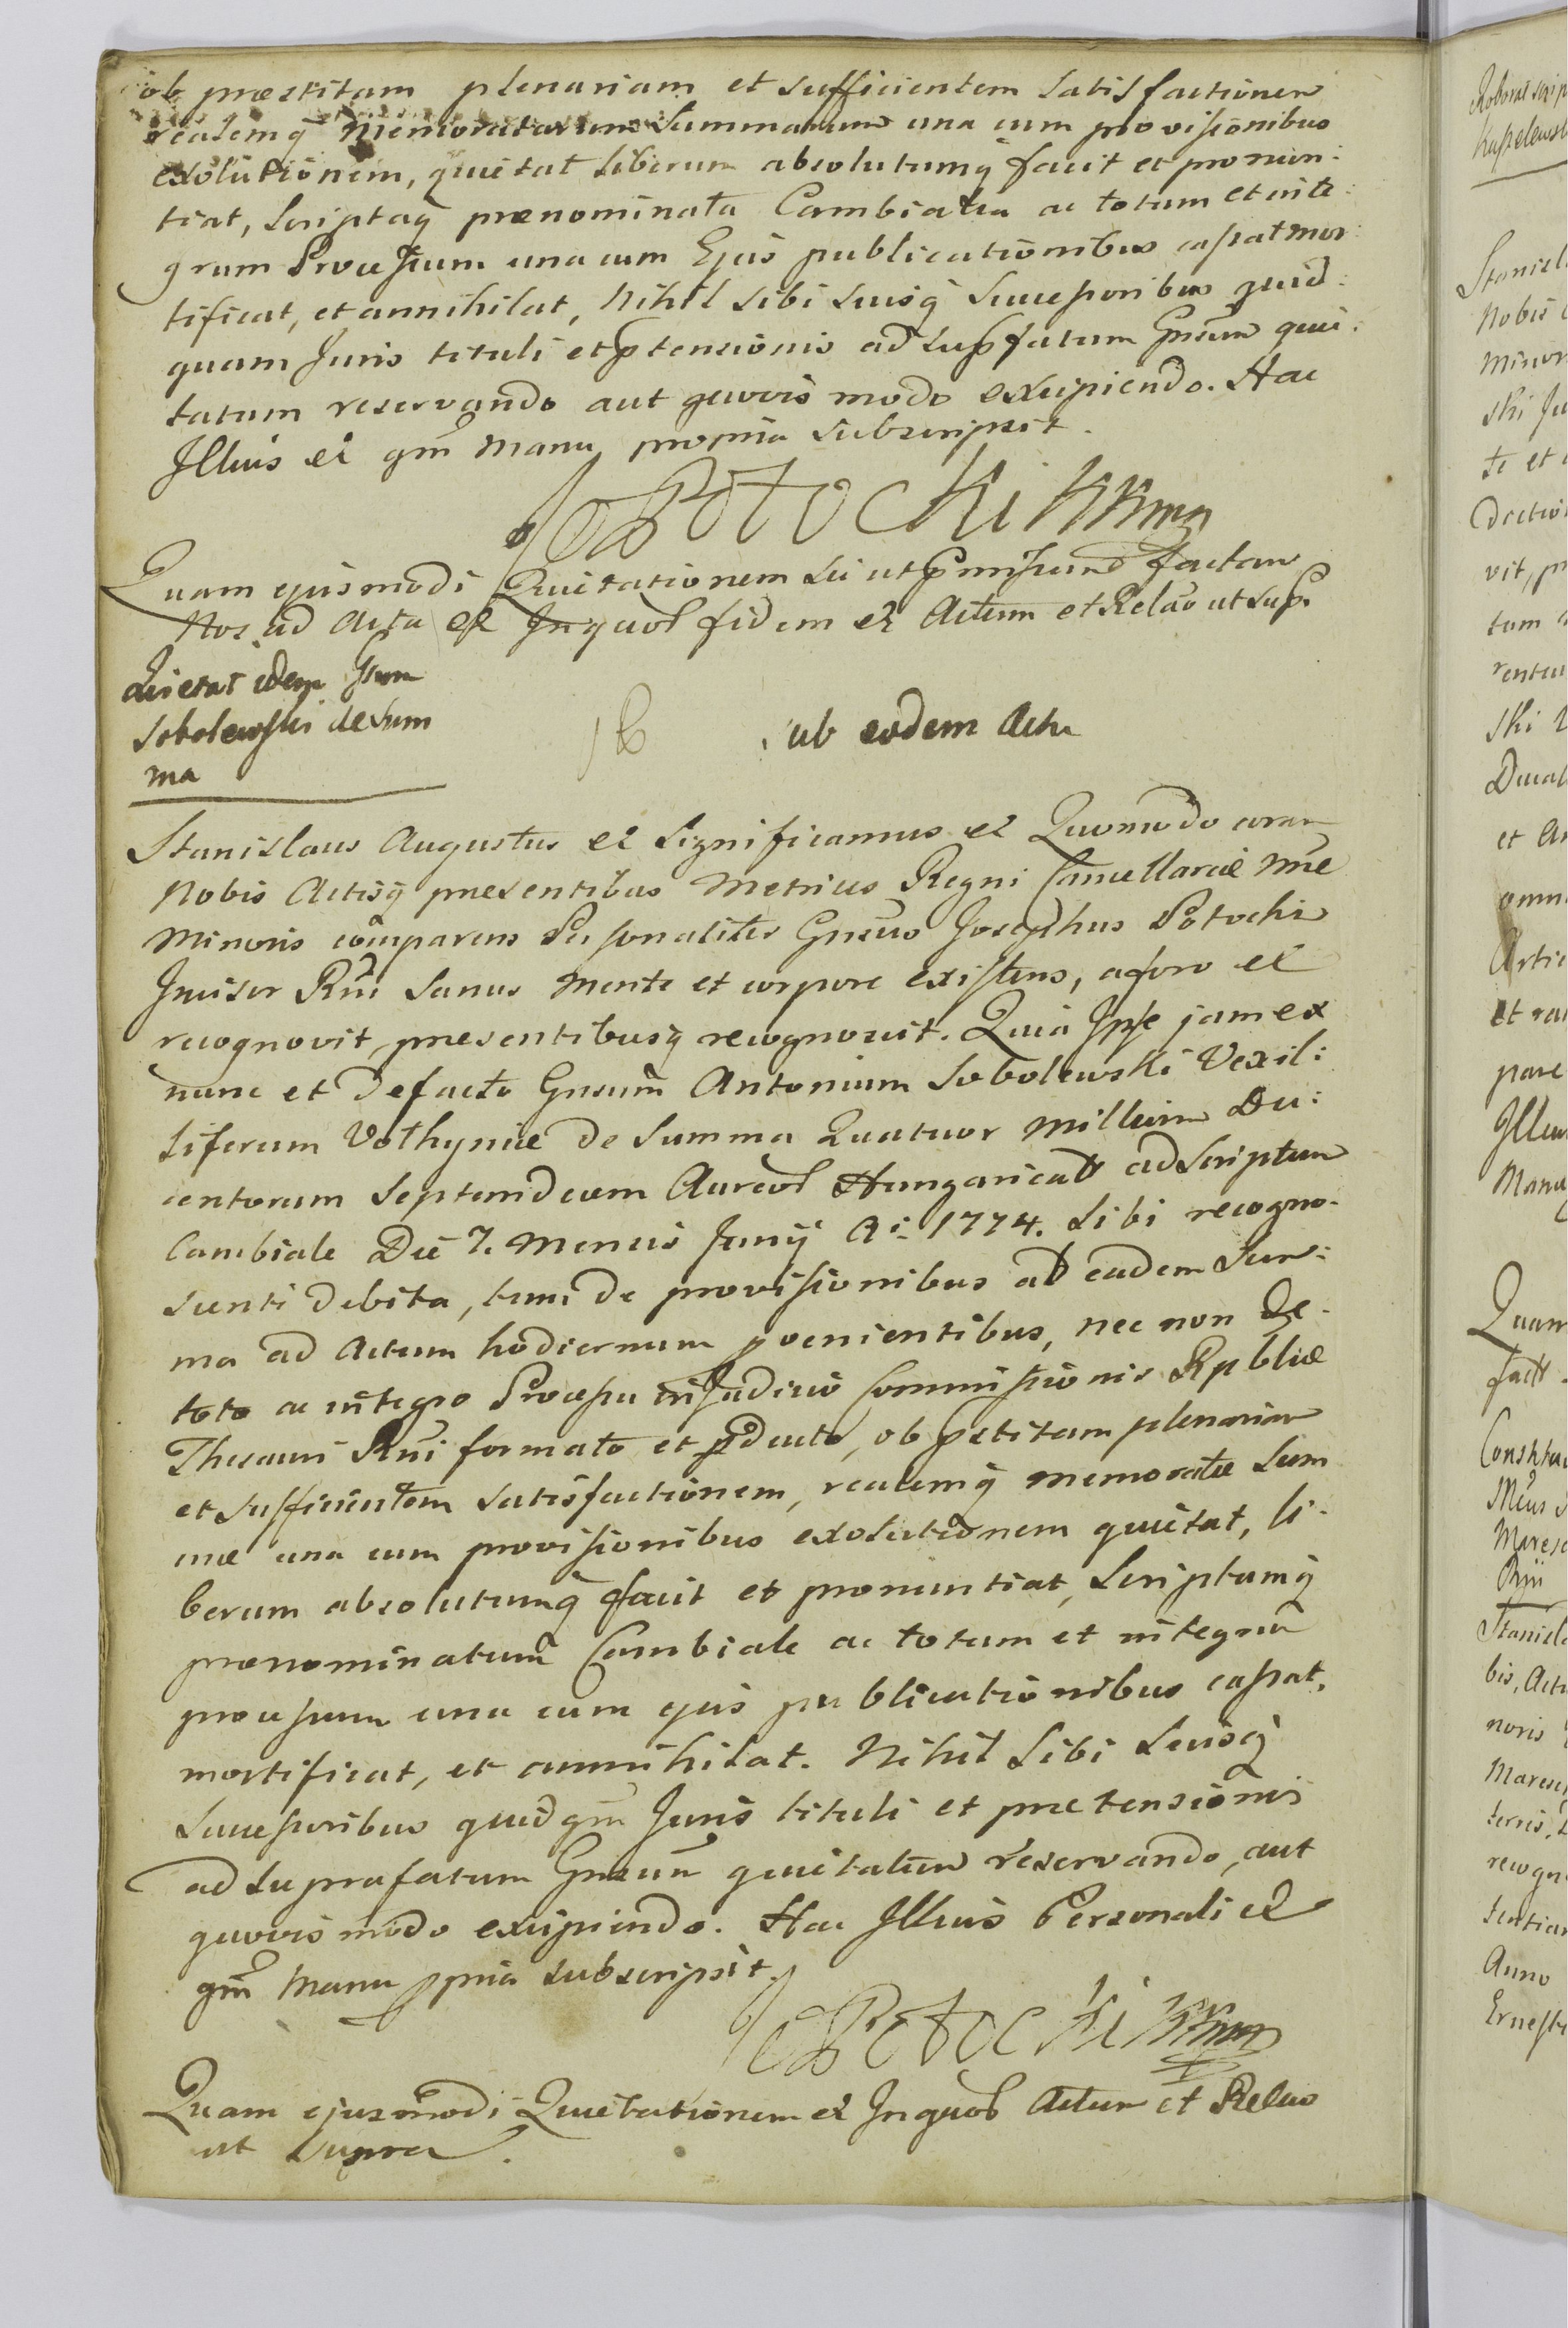 ob præstitam plenariam et sufficientem satisfactionem
realemq̃ memoratarum Summarum una cum provisionibus
exolutionem, quietat liberum absolutumq̃ facit et pronun:
tiat, Scriptaq̃ prænominata Cambialia ac totum et inte:
grum Processum una cum Ejus publicationibus cassat mor:
tificat, et annihilat, Nihil sibi suisq̃ Successoribus quid:
quam Juris tituli et ptensionis ad supfatum Gnsum quie:
tatum reservando aut quovis modo excipiendo. Hac
Illius et qm̃ Manu propria subscripsit.
Potocki KKmp
Quam ejusmodi Quietationem sic ut pmissum factam
Nos ad Acta et Inquor fidem et Actum et Relao ut sup.
Quietat idem Gsum
Sobolewski de Sum
ma
ib ub eodem Actu
Stanislaus Augustus et Significamus et Quomodo coram
Nobis Actisq̃ præsentibus Metrices Regni Cancellariæ Nræ
Minoris comparens Personaliter Gnsus Josephus Potocki
Inciser Rni Sanus mente et corpore existens, aforo et
recognovit, præsentibusq̃ recognoscit. Quia Ipse jam ex
nunc et de facto Gnsum Antonium Sobolewski Vexil:
liferum Volhyniæ de Summa Quatuor millium Du:
centorum Septemdecem Aureor Hungaricalt ad Scriptum
Cambiale Die 7. Mensis Junij Ai. 1774. sibi recogno-
scenti debita, tum de provisionibus ab eadem Sum:
ma ad Actum hodiernum pvenientibus, nec non de
toto ac integro Processu in Judicio Commissionis Rpblicæ
Thesauri Rni formato et pducto, ob pstitam plenariam
et sufficientem satisfactionem, realemq̃ memoratæ Sum
mæ una cum provisionibus exolutionem quietat, li-
berum absolutumq̃ facit et pronuntiat, Scriptumq̃
prænominatum Cambiale ac totum et integrum
processum una cum ejus publicationibus cassat,
mortificat, et annihilat. Nihil Sibi Suisq̃
Successoribus quidqm̃ Juris tituli et prætensionis
ad suprafatum Gnsum quietatum reservando, aut
quovis modo excipiendo. Hac Illius Personali et
qm̃ Manu ppria subscripsit.
Potocki KKmp
Quam ejusmodi Quietationem et Inquor Actum et Relao
ut Supra.